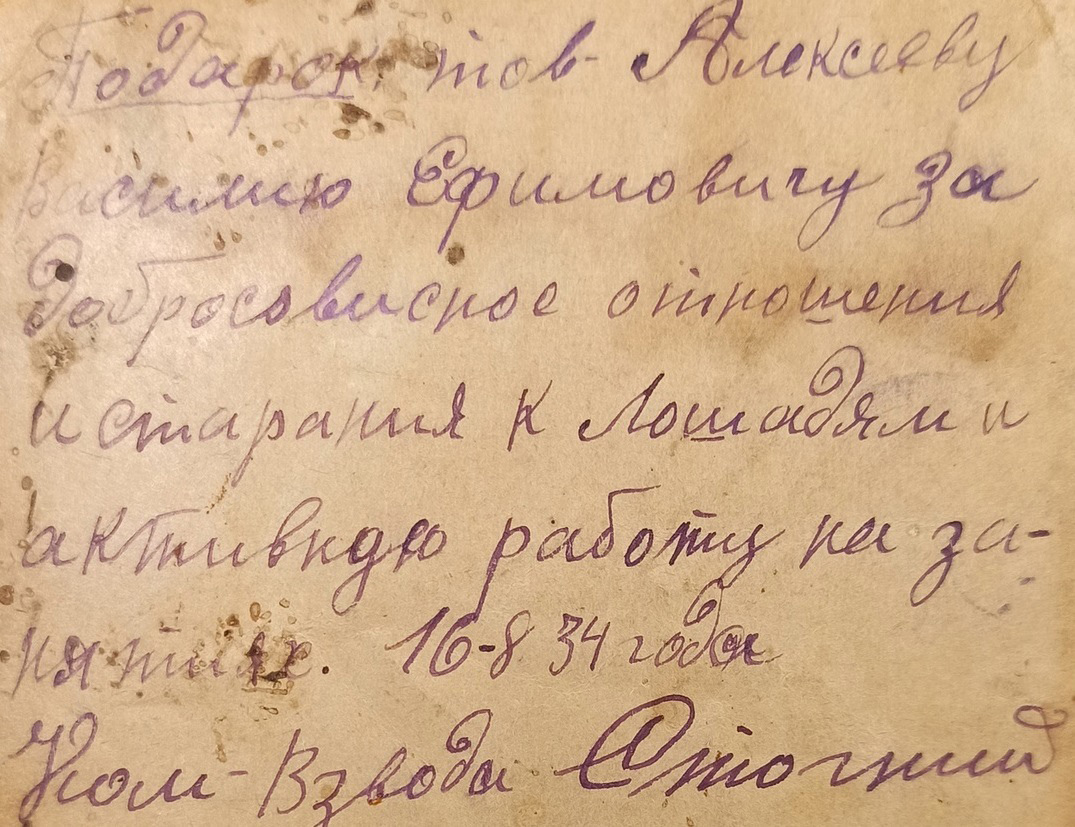 Подарок тов- Алексееву
Василию Ефимовичу за
добросовисное отношения
и старания к Лошадям и
активную работу на за-
нятиях. 16-8 34 года
Ком- Взвода